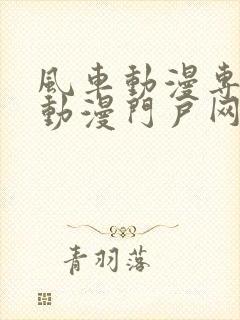 風車動漫專
動漫門戶网
青羽落